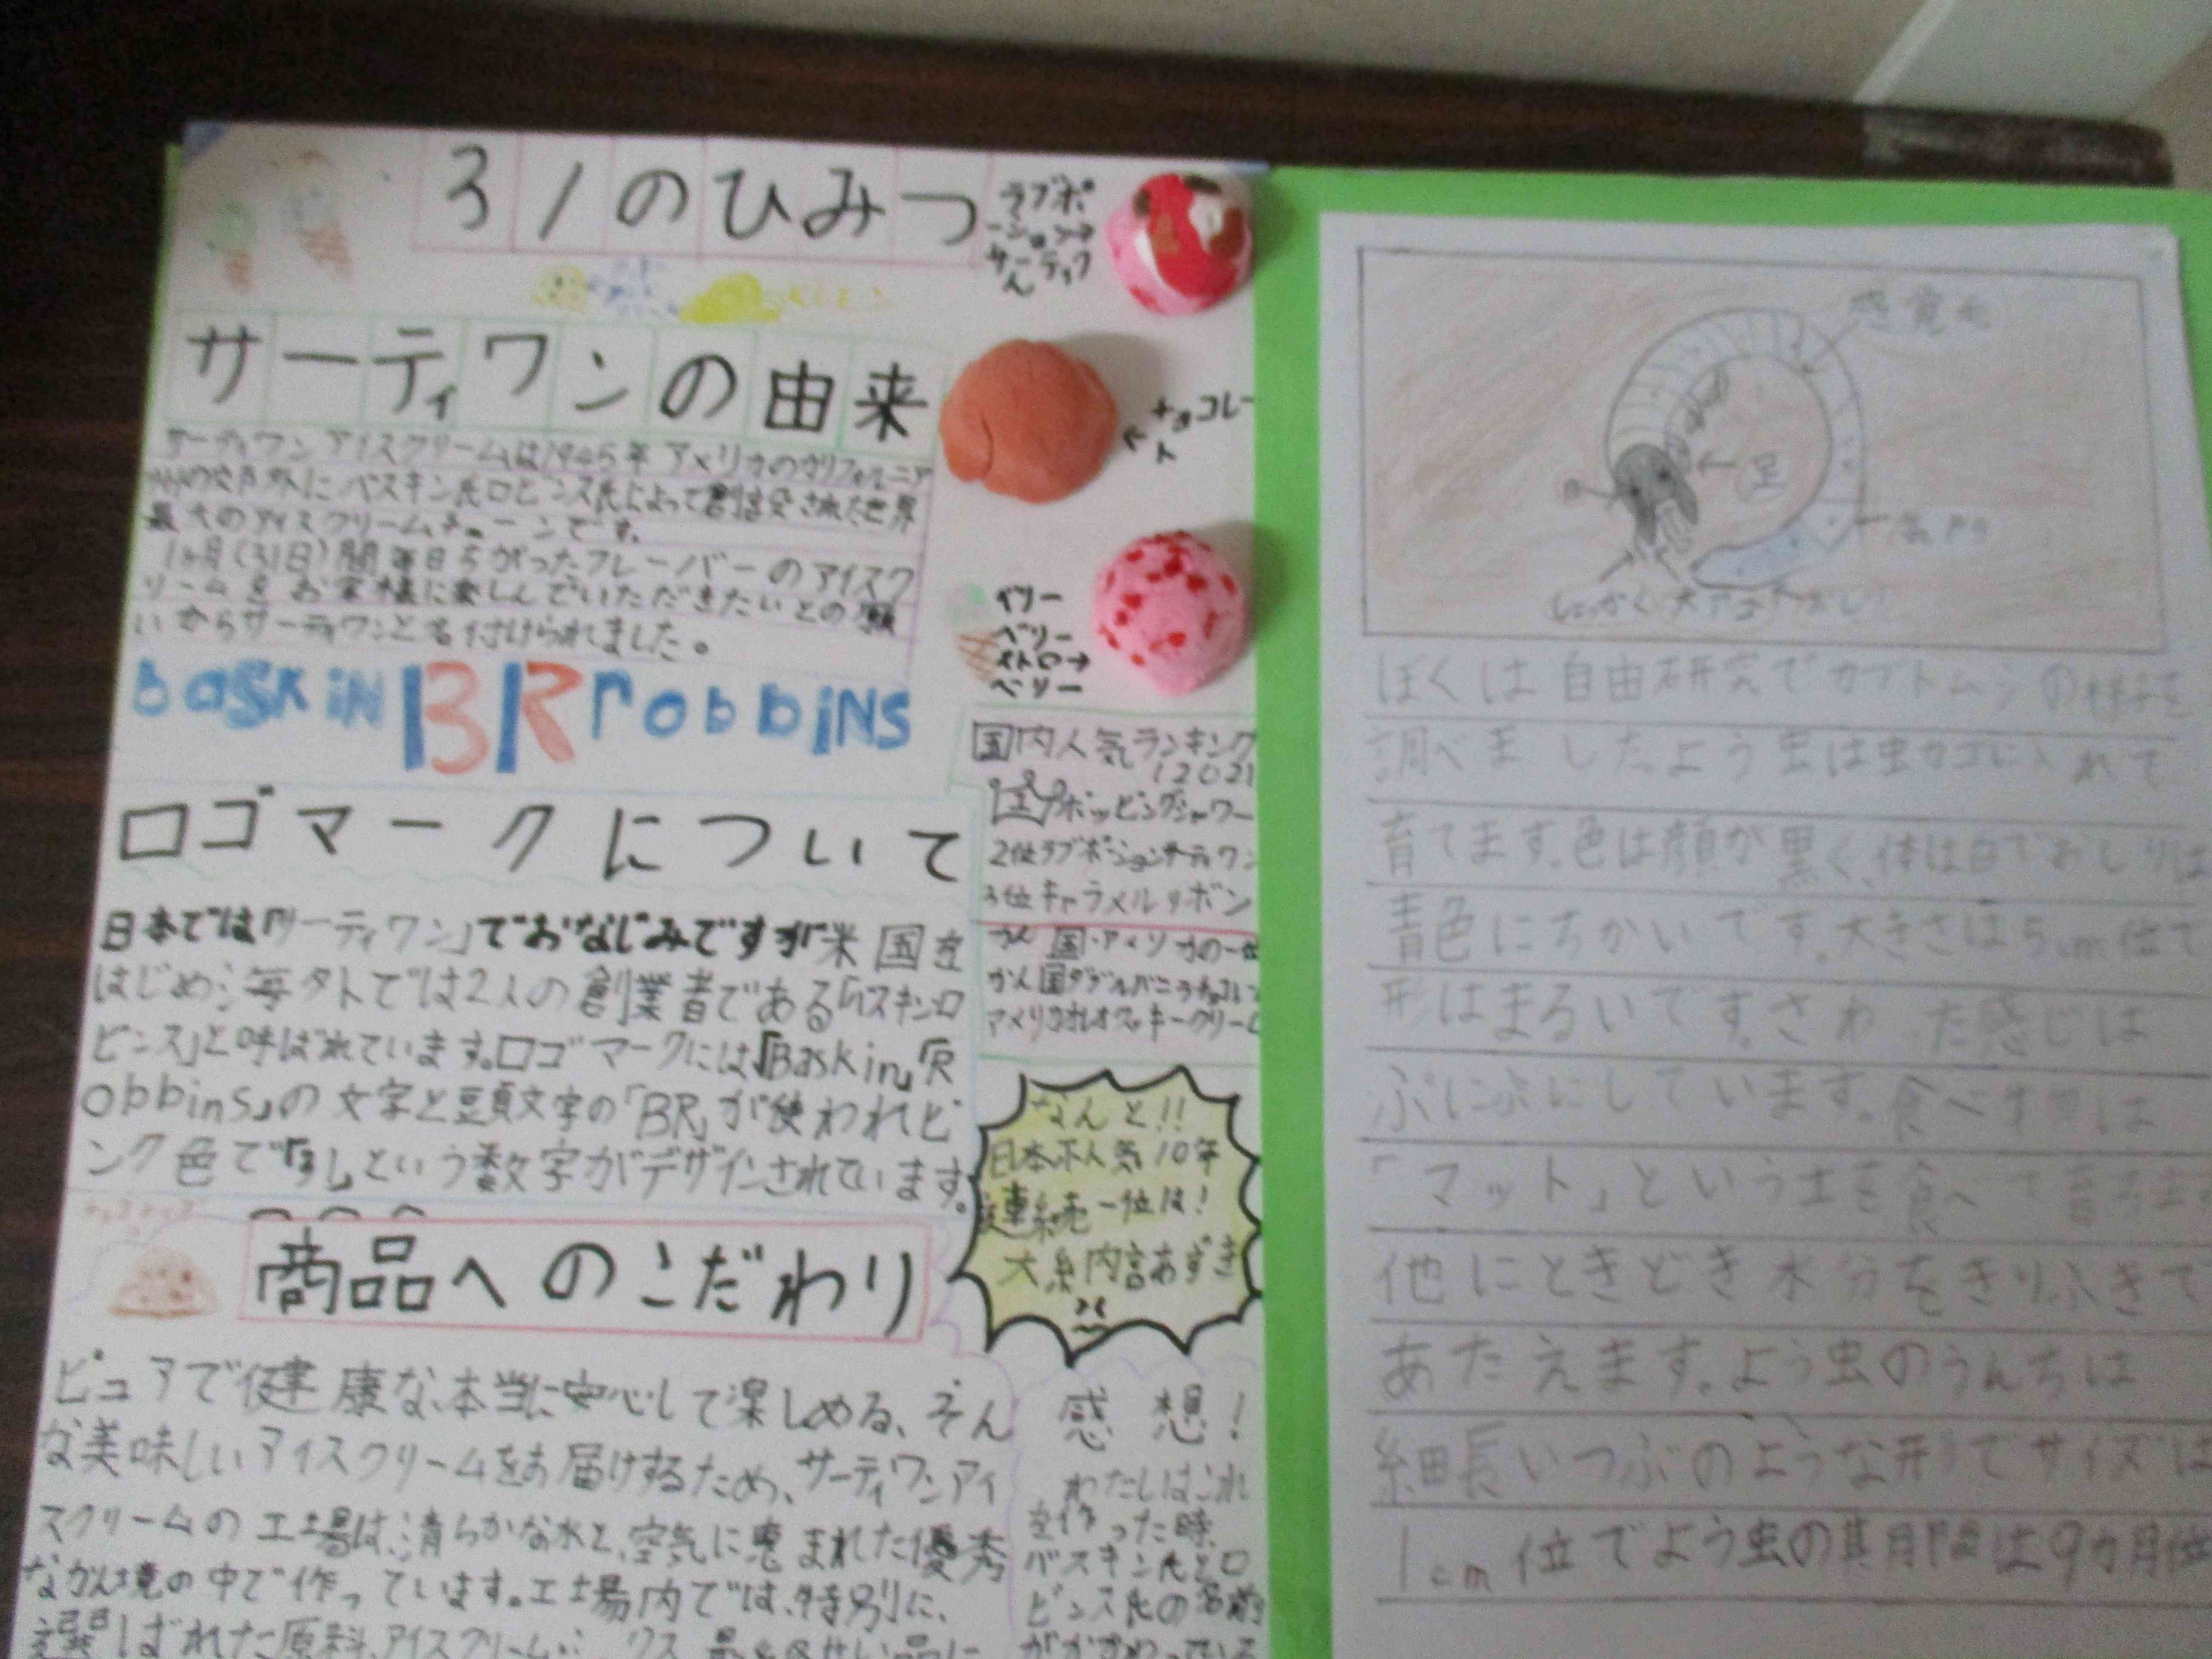 31のひみつ
ラブポ
ーション→
サーティワ
ん
サーティワンの由来
サーティワンアイスクリームは1945年アメリカのカリフォルニア
バスキン氏ロビンス氏によって創設された世界
最大のアイスクリームチェーンです。
1ヶ月(31日)間毎日ちがったフレーバーのアイスク
リームをお客様に楽しんでいただきたいとの願
いからサーティワンと名付けられました。
baskin BR robbins
←チョコレー
ト
ベリー
ベリー
ストロー→
ベリー
ロゴマークについて
日本では「サーティワン」でおなじみですが米国を
はじめ海外では2人の創業者である「バスキンロ
ビンス」と呼ばれています。ロゴマークには「Baskin」「R
obbins」の文字と頭文字の「BR」が使われピ
ンク色で「31」という数字がデザインされています。
国内人気ランキング
2021
1位ポッピングシャワー
2位ラブポーションサーティワン
3位キャラメルリボン
かん国・アメリカの一位
かん国ダブルバニラチョコレ
アメリカオレオクッキークリーム
なんと!!
日本不人気10年
連続一位は!
大納言あずき
商品へのこだわり
ピュアで健康な、本当に安心して楽しめる、そん
な美味しいアイスクリームをお届けするため、サーティワンアイ
スクリームの工場は、清らかな水と、空気に恵まれた優秀
なかん境の中で作っています。工場内では、特別に、
選しばれた原料、アイスクリーム
感想!
わたしはこれ
を作った時、
バスキン氏とロ
ビンス氏の名前
感覚毛
足
気門
大アゴ
ぼくは自由研究でカブトムシの様子を
調べました。よう虫は虫カゴに入れて
育てます。色は顔が黒く、体は白でおしりは
青色にちかいです。大きさは5cm位で
形はまるいです。さわった感じは
ぷにぷにしています。食べ物は
「マット」という土を食べて育ちます
他にときどき水分をきりふきで
あたえます。よう虫のうんちは
細長いつぶのような形でサイズは
1cm位でよう虫の期間は9カ月位